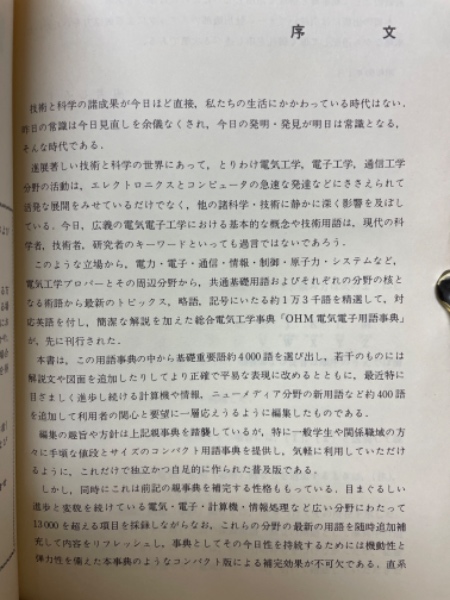 序文
技術と科学の諸成果が今日ほど直接，私たちの生活にかかわっている時代はない．
昨日の常識は今日見直しを余儀なくされ，今日の発明・発見が明日は常識となる，
そんな時代である．
進展著しい技術と科学の世界にあって，とりわけ電気工学，電子工学，通信工学
分野の活動は，エレクトロニクスとコンピュータの急速な発達などにささえられて
活発な展開をみせているだけでなく，他の諸科学・技術に静かに深く影響を及ぼし
ている．今日，広義の電気電子工学における基本的な概念や技術用語は，現代の科
学者，技術者，研究者のキーワードといっても過言ではないであろう．
このような立場から，電力・電子・通信・情報・制御・原子力・システムなど，
電気工学プロパーとその周辺分野から，共通基礎用語およびそれぞれの分野の核と
なる術語から最新のトピックス，略語，記号にいたる約1万3千語を精選して，対
応英語を付し，簡潔な解説を加えた総合電気工学事典「OHM電気電子用語事典」
が，先に刊行された．
本書は，この用語事典の中から基礎重要語約4000語を選び出し，若干のものには
解説文や図面を追加したりしてより正確で平易な表現に改めるとともに，最近特に
目ざましく進歩し続ける計算機や情報，ニューメディア分野の新用語など約400語
を追加して利用者の関心と要望に一層応えうるように編集したものである．
編集の趣旨や方針は上記親事典を踏襲しているが，特に一般学生や関係職域の方
々に手頃な値段とサイズのコンパクト用語事典を提供し，気軽に利用していただけ
るように，これだけで独立かつ自足的に作られた普及版である．
しかし，同時にこれは前記の親事典を補完する性格ももっている．目まぐるしい
進歩と変貌を続けている電気・電子・計算機・情報処理など広い分野にわたって
13000を超える項目を採録しながらなお，これらの分野の最新の用語を随時追加補
充して内容をリフレッシュし，事典としてその今日性を持続するためには機動性と
弾力性を備えた本事典のようなコンパクト版による補完効果が不可欠である．直系